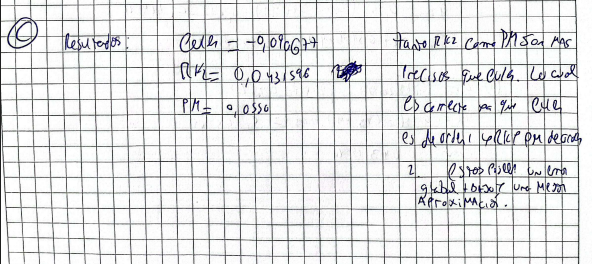 C
Resultados: Euler = -0,090677
RK2 = 0,0431596
PM = 0,0550
tanto RK2 como PM Son mas
Precisos que Euler. Lo cual
es correcto ya que Euler
es de orden 1 y RK2 PM de orden
2. estos un error
global una Mejor
Aproximación.